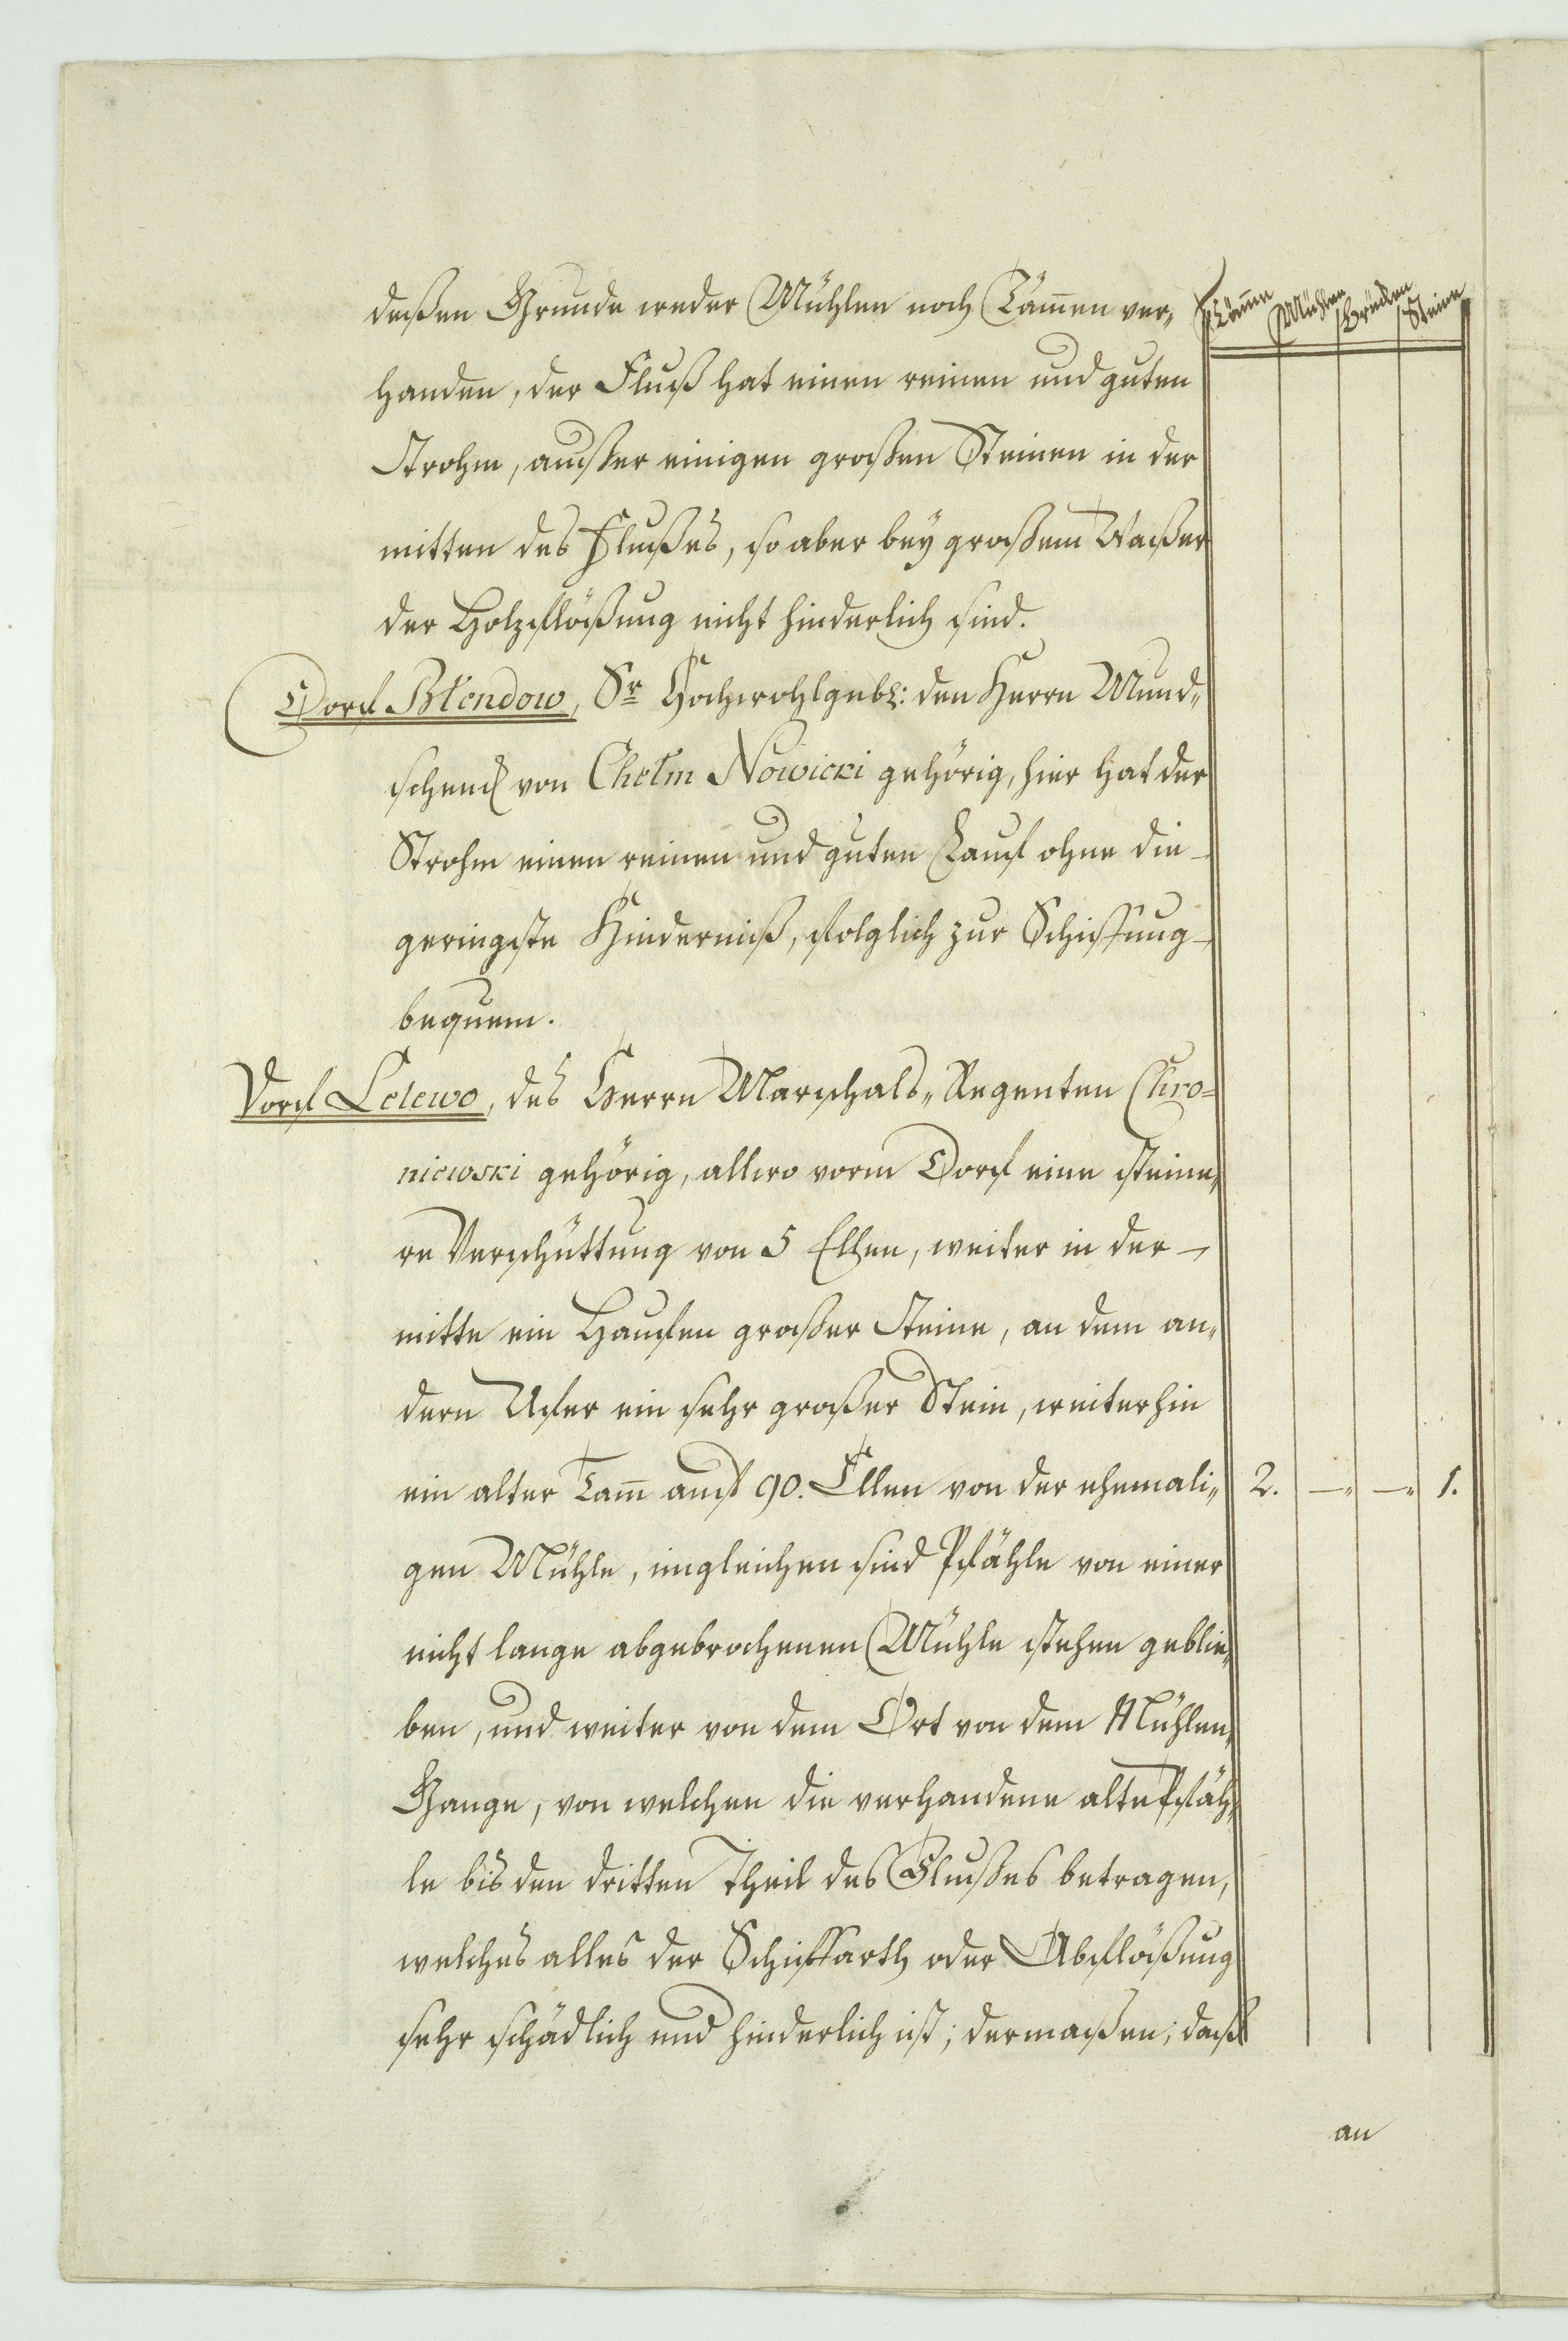 deßen Grunde weder Mühlen noch Täm̄en ver„
handen, der Fluß hat einen reinen und guten
Strohm, außer einigen großen Steinen in der
mitten des Flußes, so aber bey großem Waßer
der Holzflößung nicht hinderlich sind.
Dorf Błendow, Sr Hochwohlgebl: den Herrn Mund„
schenck von Chełm Nowicki gehörig, hier hat der
Strohm einen reinen und guten Lauf ohne die
geringste Hinderniß, folglich zur Schiffung
bequem.
Dorf Lelewo, des Herrn Marschals„ Regenten Chro=
niewski gehörig, allwo vorm Dorf eine steine„
re Verschüttung von 5 Ellen, weiter in der
mitte ein Haufen großer Steine, an dem an„
dern Ufer ein sehr großer Stein, weiterhin
ein alter Tam̄ auf 90. Ellen von der ehemali„ 2. —„ —„ 1.
gen Mühle, imgleichen sind Pfähle von einer
nicht lange abgebrochenen Mühle stehen geblie„
ben, und weiter von dem Ort von dem Mühlen„
Gange, von welchen die verhandene alte Pfäh„
le bis den dritten Theil des Flußes betragen,
welches alles der Schiffarth oder Abflößung
sehr schädlich und hinderlich ist; dermaßen, daß
an
Täm̄e Mühlen Brücken Steine